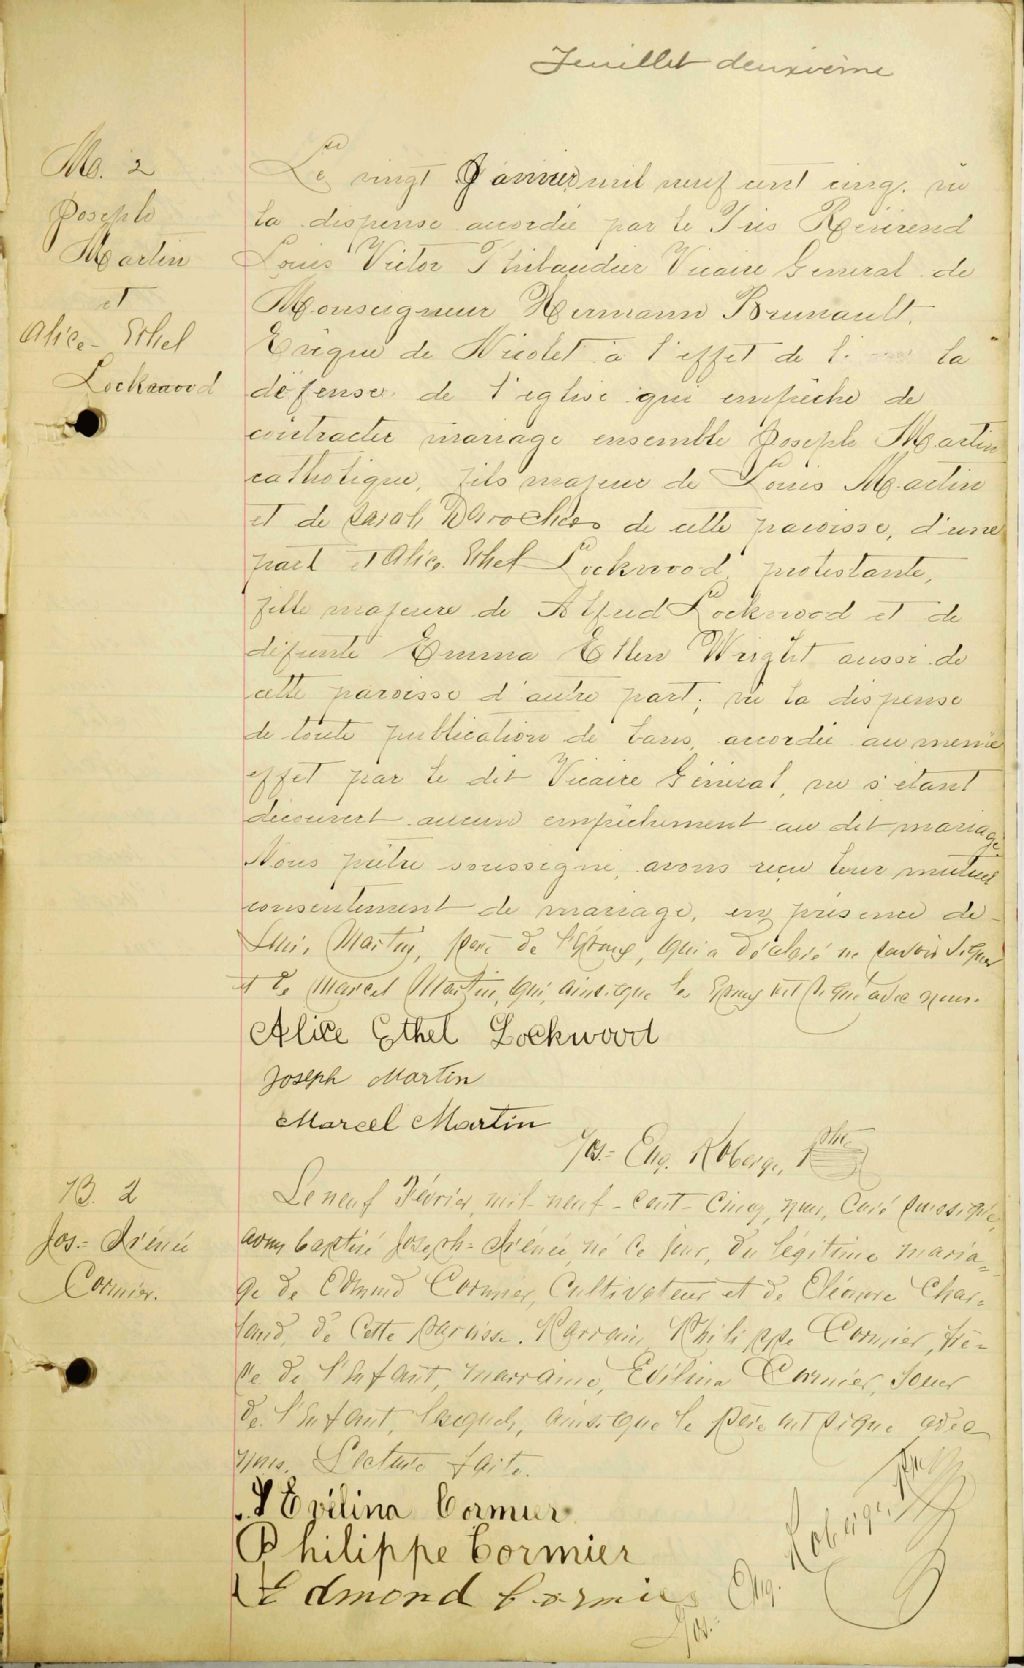 Feuillet deuxième
M. 2
Joseph
Martin
et
Alice Ethel
Lockwood
Le vingt Janvier mil neuf cent cinq, vu
la dispense accordée par le Très Révérend
Louis Victor Thibaudier Vicaire General de
Monseigneur Hermann Brunault,
Evêque de Nicolet à l'effet de la
défense de l'eglise qui empêche de
contracter mariage ensemble Joseph Martin
catholique, fils majeur de Louis Martin
et de Sarah Desroches de cette paroisse, d'une
part et Alice Ethel Lockwood, protestante,
fille majeure de Alfred Lockwood et de
défunte Emma Ellen Wright aussi de
cette paroisse d'autre part; vu la dispense
de toute publication de bans, accordée au meme
effet par le dit Vicaire Général, ne s'étant
découvert aucun empêchement au dit mariage
Nous prêtre soussigné, avons reçu leur mutuel
consentement de mariage, en présence de
Louis Martin, père de l'Epoux, qui a déclaré ne savoir signer
et de Marcel Martin, qui, ainsi que les Epoux ont signé avec nous.
Alice Ethel Lockwood
Joseph Martin
Marcel Martin
Jos- Eug. Roberge, ptre
B. 2
Jos.= Irénée
Cormier.
Le neuf Février, mil-neuf-cent-cinq, nous, Curé soussigné,
avons baptisé Joseph-Irénée, né ce jour, du légitime maria=
ge de Edmond Cormier, Cultivateur et de Eléonore Char=
land, de cette paroisse. Parrain, Philippe Cormier, frè=
re de l'Enfant, marraine, Evélina Cormier, soeur
de l'Enfant, lesquels, ainsi que le père ont signé avec
nous. Lecture faite.
Evélina Cormier
Philippe Cormier
Edmond Cormier
Jos.= Eug. Roberge, Ptre